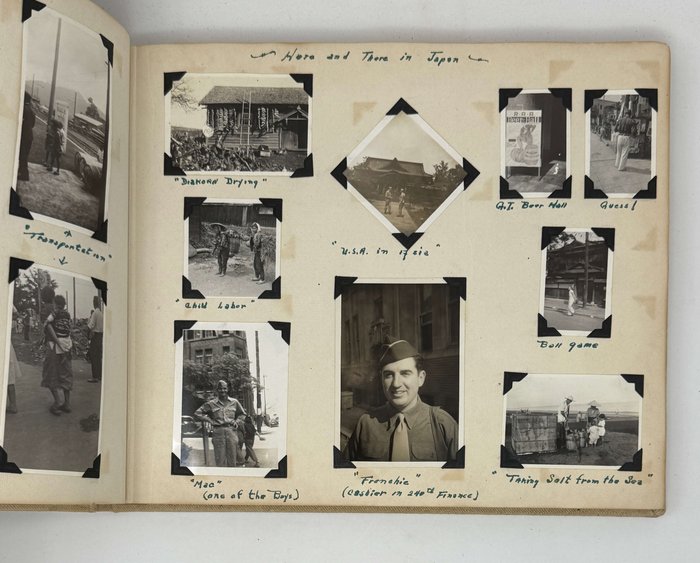 Here and There in Japan
"Transportation"
"Diakorn Drying"
"U.S.A. in Asia"
G.I. Beer Hall
Guess!
"Child Labor"
Ball game
"Mac"
(one of the Boys)
"Frenchie"
(Cashier in 240th Finance)
"Taking Salt from the Sea"